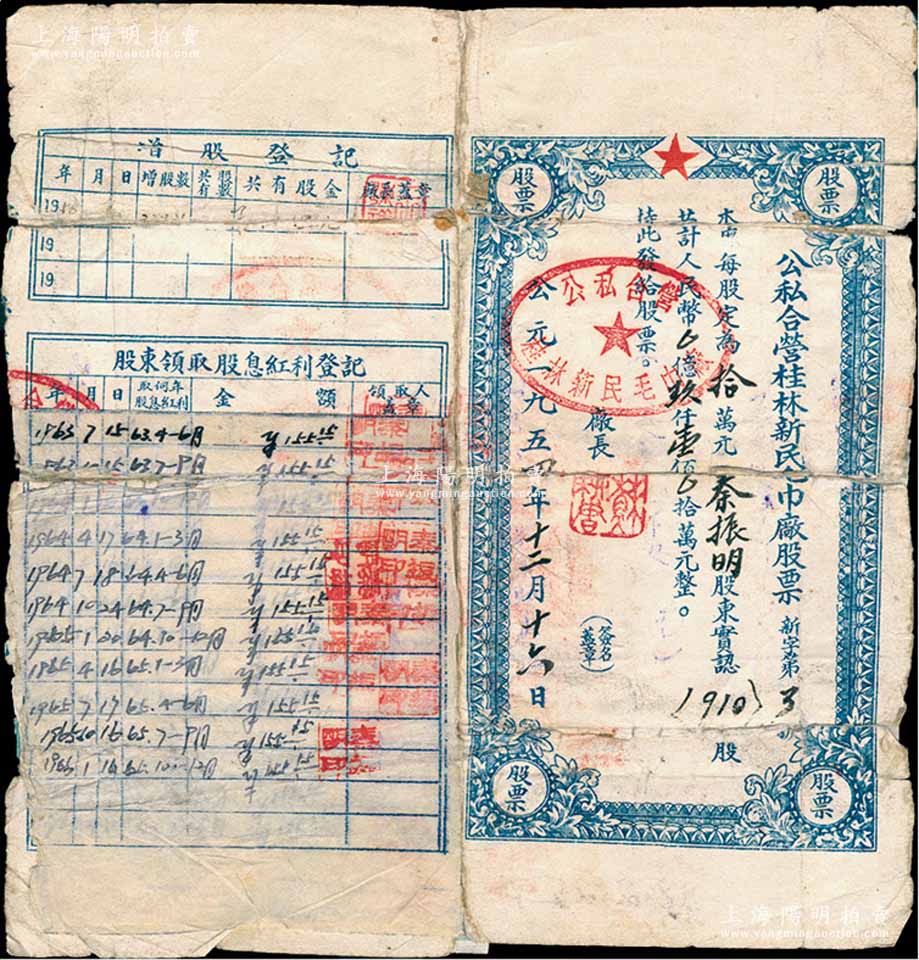 上海陽明拍賣
www.yangmingauction.com
股票
股票
公私合營桂林新民毛巾廠股票 新字第 3 號
本廠每股定為拾萬元 秦振明 股東實認 1910 股
共計人民幣 億玖仟壹佰 拾萬元整。
特此發給股票。
廠長
(簽名蓋章)
公元一九五四年十二月十六日
公私合營
桂林新民毛巾廠
股票
股票
增股登記
年 月 日 增股數 共有股數 共有股金 廠長蓋章
19
19
19
股東領取股息紅利登記
年 月 日 取何年股息紅利 金額 領取人蓋章
1963 7 15 63.4-6月 155 15
1963 15 63.7-9月 155 15
1964 4 17 64.1-3月 155 15
1964 7 18 64.4-6月 155 15
1964 10 24 64.7-9月 155 15
1965 1 20 64.10-12月 155 15
1965 4 16 65.1-3月 155 15
1965 7 17 65.4-6月 155 15
1965 10 16 65.7-9月 155 15
1966 1 16 65.10-12月 155 15
上海陽明拍賣
www.yangmingauction.com
上海陽明拍賣
www.yangmingauction.com